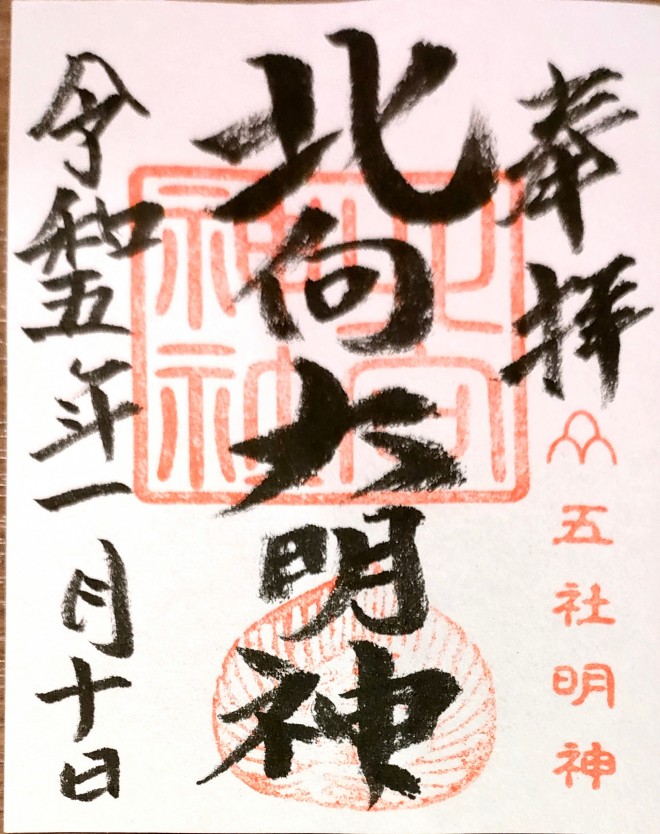 奉拝
五社明神
北向大明神
令和五年一月十日